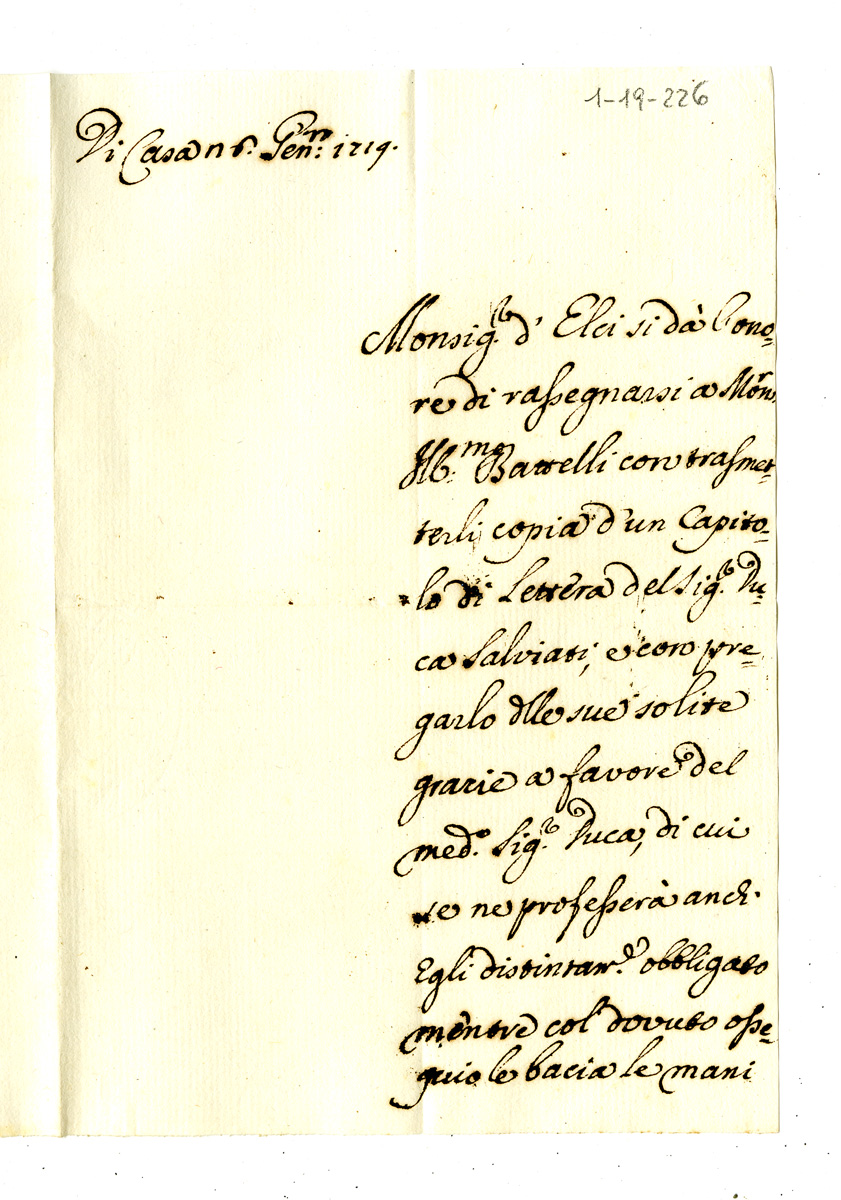 1-19-226
Di Casa n 6. Genn:ro 1719.
Monsig.r d' Elci si dà l'ono=
re di rassegnarsi a Mon.r
Ill.mo Battelli con trasmet=
terli copia d'un Capito=
lo di Lettera del Sig.r Du=
ca Salviati, e con pre=
garlo dlle sue solite
grazie a favore del
med.o Sig.r Duca, di cui
se ne professerà anch'
Egli distintam.e obbligato
mentre col dovuto osse=
quio le bacia le mani